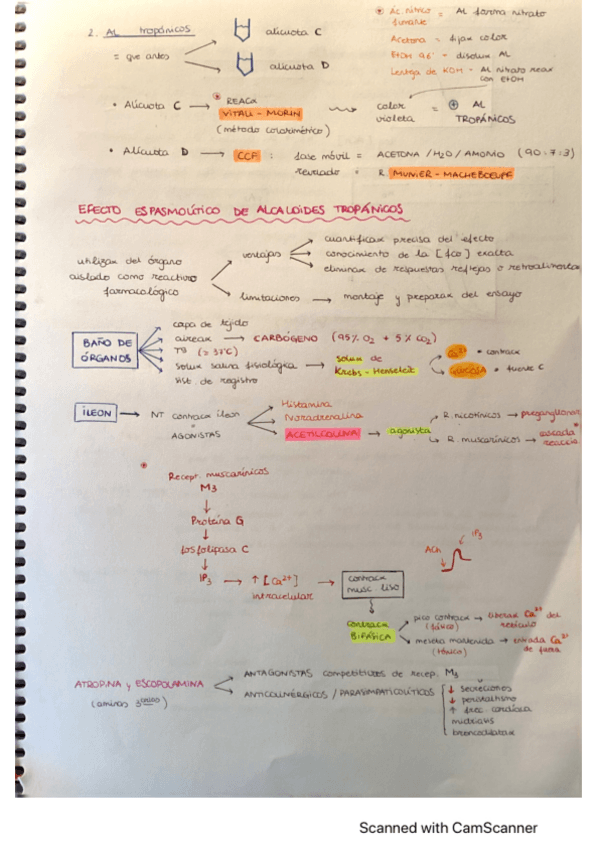 2. AL tropánicos
= que antes
alícuota C
alícuota D
* Ác. nítrico fumante = AL forma nitrato
Acetona = fijar color
EtOH 96° - disolux AL
Lenteja de KOH - AL nitrato reax con EtOH
• Alícuota C → * REACX VITALI - MORIN (método colorimétrico) color violeta = ⊕ AL TROPÁNICOS
• Alícuota D → CCF : fase móvil = ACETONA / H2O / AMONIO (90:7:3)
revelado = R. MUNIER - MACHEBOEUF
EFECTO ESPASMOLÍTICO DE ALCALOIDES TROPÁNICOS
utilizax del órgano aislado como reactivo farmacológico
ventajas
cuantificax precisa del efecto
conocimiento de la [fco] exacta
eliminax de respuestas reflejas o retroalimentax
limitaciones → montaje y preparax del ensayo
BAÑO DE ÓRGANOS
capa de tejido
airear → CARBÓGENO (95% O2 + 5% CO2)
Tª (≥ 37ºC)
solux salina fisiológica → solux de Krebs - Henseleit
Ca2+ • contracx
GLUCOSA • fuente C
sist de registro
ÍLEON → NT contraen íleon = AGONISTAS
Histamina
Noradrenalina
ACETILCOLINA → agonista
R. nicotínicos → preganglionar
R. muscarínicos → cascada * reaccix
* Recept. muscarínicos
M3
↓
Proteína G
↓
fosfolipasa C
↓
IP3 → ↑ [Ca2+] intracelular → contracx musc. liso
ACh
IP3
contracx BIFÁSICA
pico contracx (fásico) → liberax Ca2+ del retículo
meseta mantenida (tónico) → entrada Ca2+ de fuera
ATROPINA y ESCOPOLAMINA (aminas 3arias)
ANTAGONISTAS competitivos de recep. M3
ANTICOLINÉRGICOS / PARASIMPATICOLÍTICOS
↓ secreciones
↓ peristaltismo
↑ frec cardíaca
midriasis
broncodilatax
Scanned with CamScanner